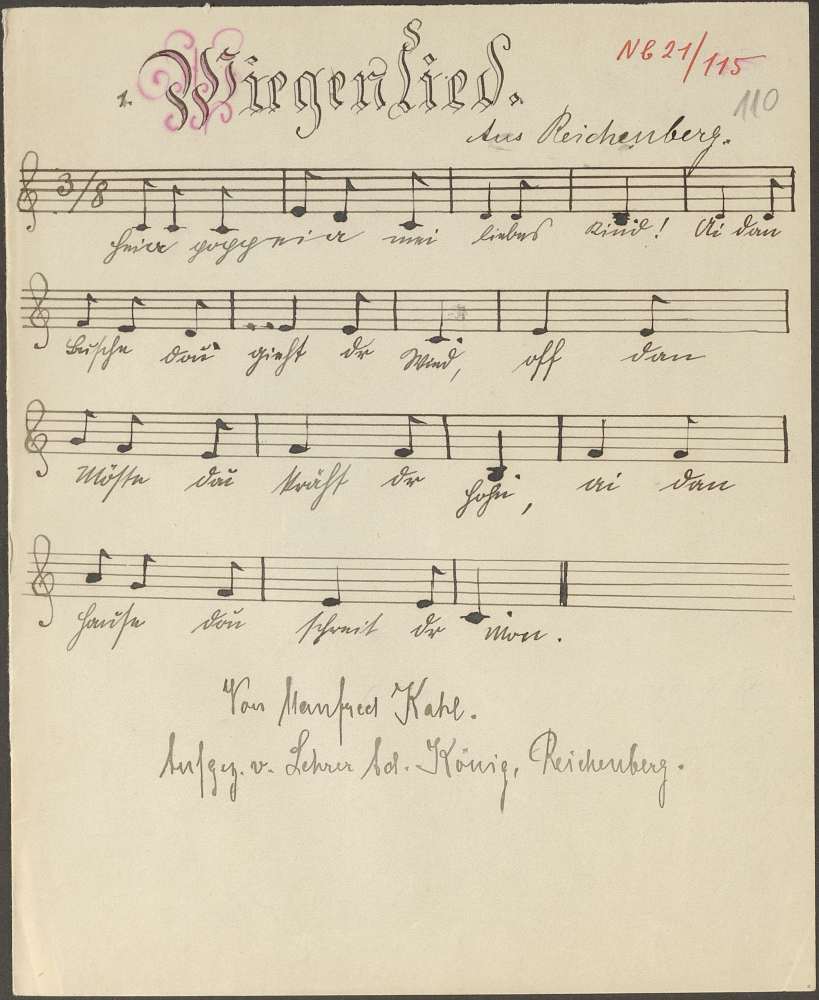 NB 21/115
110
1. Wiegenlied.
Aus Reichenberg.
3/8
Heia poppeia mei liebes Kind! Ai dan
Busche dau gieht dr Wind, off dan
Möste dau kräht dr Hohn, ai dan
Hause dau schreit dr Mon.
Von Manfred Kahl.
Aufgez. v. Lehrer Ad. König, Reichenberg.